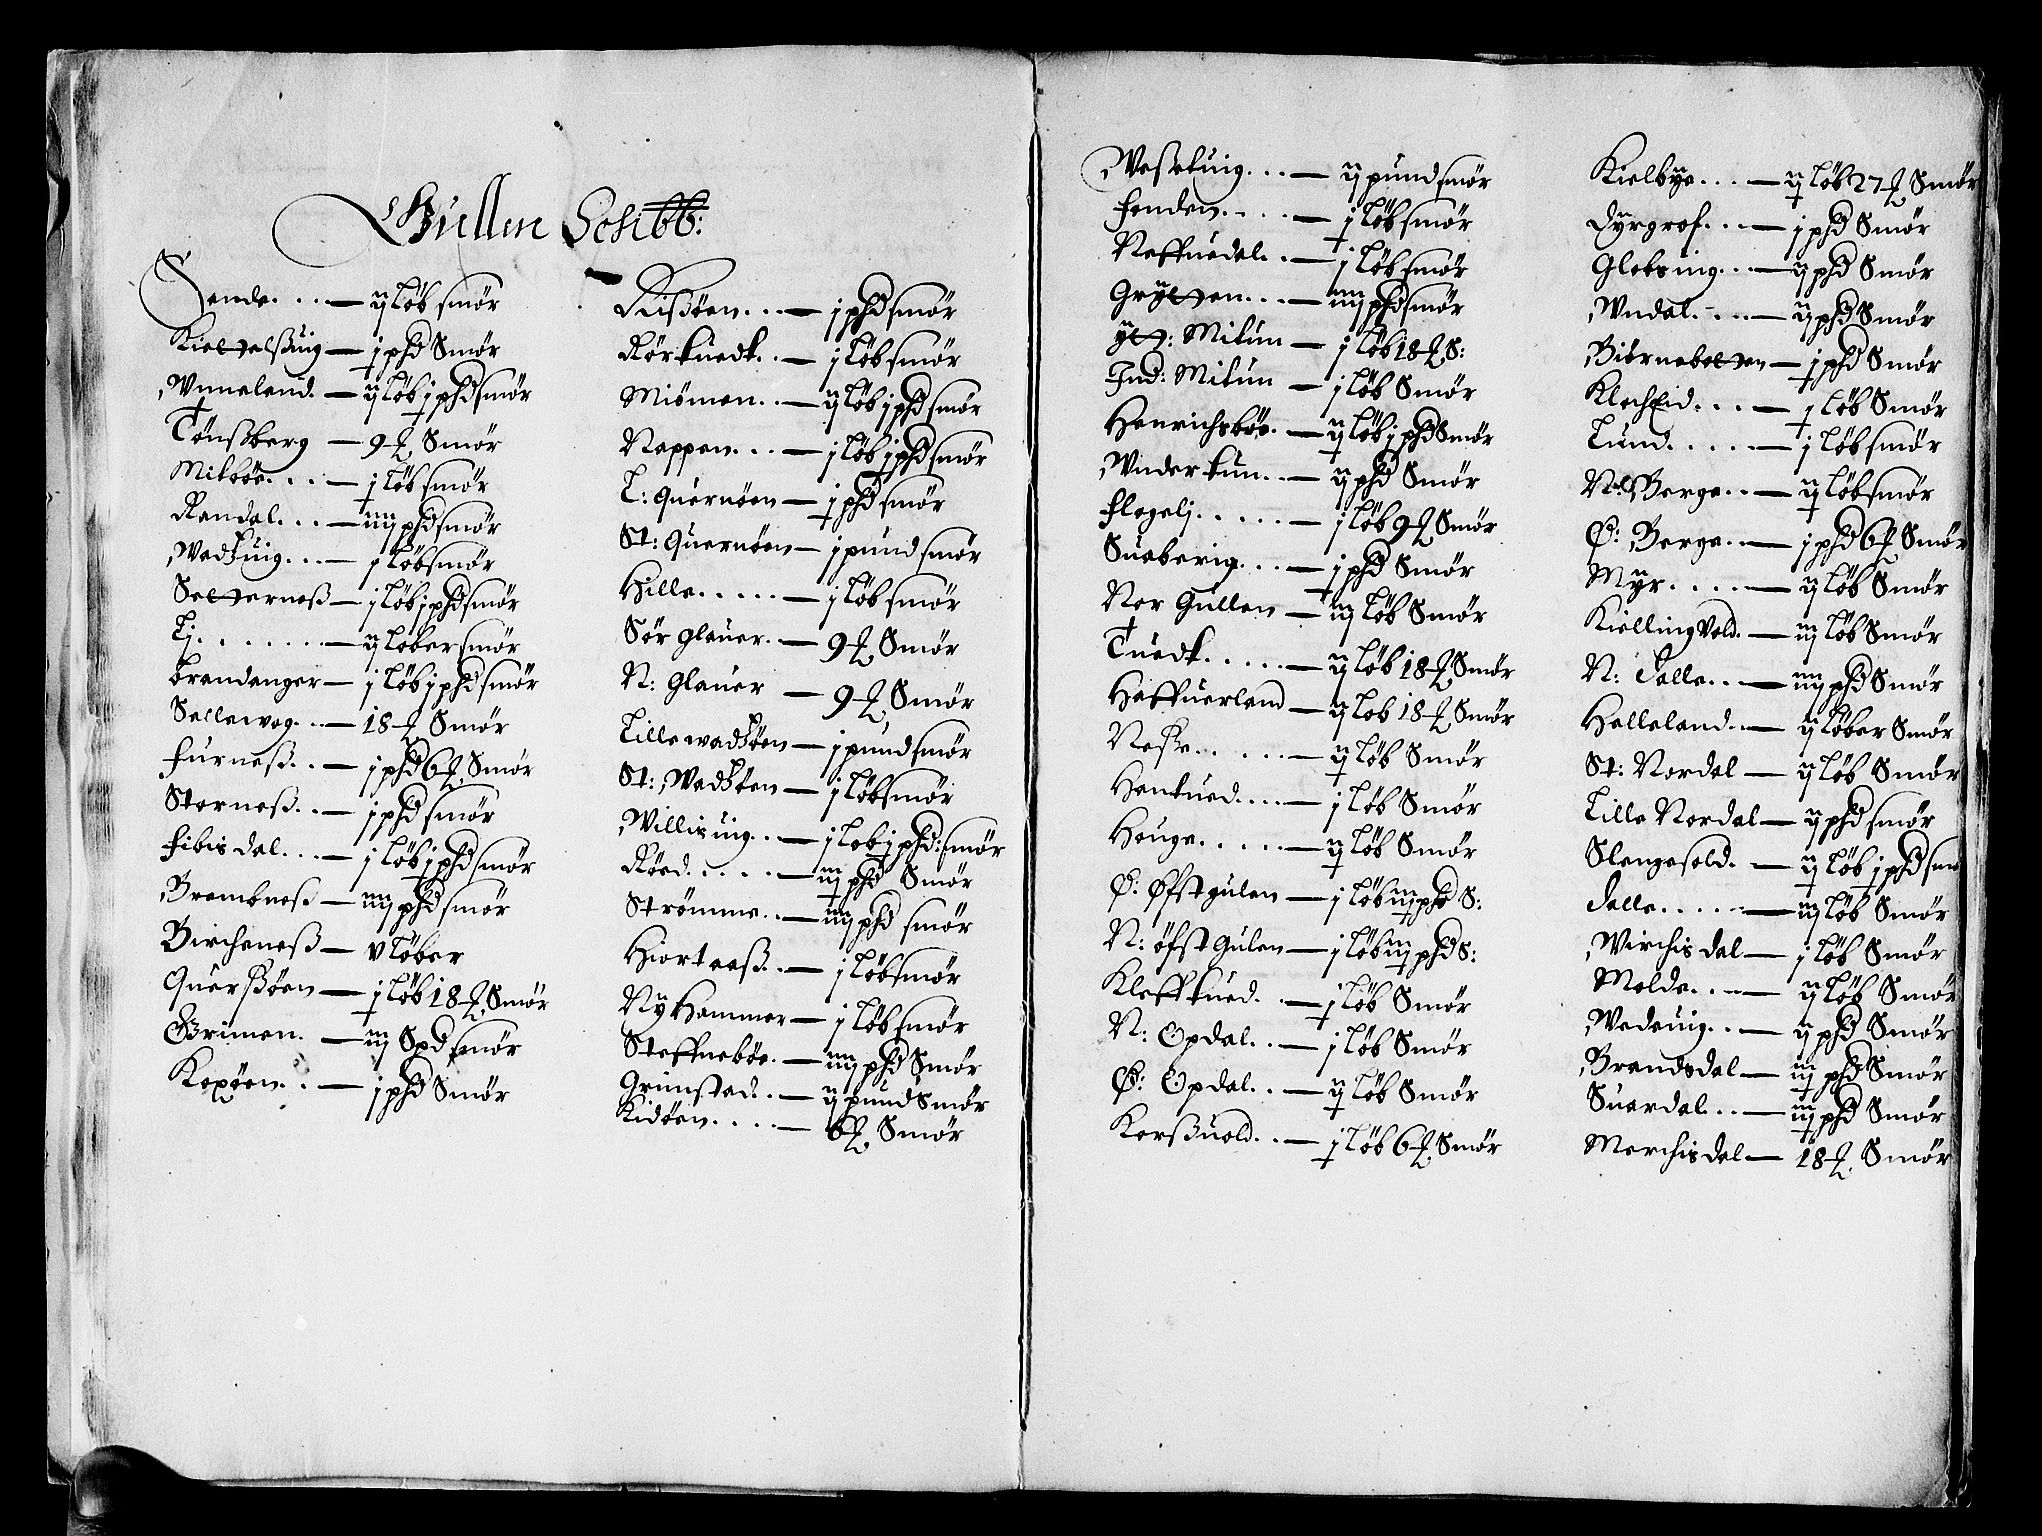 Gullen Schibb:
Sende. . . . — ij løb smør
Kielelßuig — j phd Smør
Vnneland. — ij løb j phd smør
Tønßberg — 9 ℔ Smør
Milbøe. . . . — j løb smør
Randal. . . — iiij phd smør
Wadßuig. . . — j løb smør
Seterneß — j løb j phd smør
Lj. . . . . . . — ij løber smør
brandanger — j løb j phd smør
Sellewog. . — 18 ℔ Smør
furneß. . — j phd 6 ℔ Smør
Storneß. . — j phd smør
fibisdal. . . — j løb j phd smør
Brembneß — iiij phd smør
Bircheneß — v løber
Querßøen — j løb 18 ℔ Smør
Grimen. — iij Spd smør
Kopøen. . . — j phd Smør
Rißøen. . . — j phd smør
Rørkuedt. . — j løb smør
Miømen. . — ij løb j phd smør
Nappen. . . — j løb j phd smør
L: Quernøen — j phd smør
St: Quernøen — j pund smør
Hille. . . . . — j løb smør
Sør glauer. — 9 ℔ Smør
N: glauer — 9 ℔ Smør
Lille wadßøen — j pund smør
St: Wadßøen — j løb smør
Willisuig. . — j løb j phd: smør
Røed. . . . . — iij phd Smør
Strømme. . — iiij phd smør
Hiortaaß. . — j løb smør
Ny Hammer — j løb smør
Steffnebøe. — iiij phd Smør
Grimstad. . — ij pund Smør
Kidøen. . . . — 6 ℔ Smør
Weßetuig. . . — ij pund smør
fonden. . . . — j løb smør
Neffuedal. . — j løb smør
Grytten. . . — iiij phd smør
yt: Milum — j løb 18 ℔ S:
Ind: Milum — j løb Smør
Henrichsbøe. — ij løb j phd Smør
Wnderkun. . — ij phd Smør
flogelj. . . . . — j løb 9 ℔ Smør
Suaberig. . . — j phd Smør
Nor Gullen — iij løb Smør
Tuedt. . . . . — ij løb 18 ℔ Smør
Haffuerland — ij løb 18 ℔ Smør
Neße. . . . . — ij løb Smør
Hankued. . . . — j løb Smør
Houge. . . . . — ij løb Smør
Ø: Øfstgulen — j løb iij phd S:
N: øfstgulen — j løb iij phd S:
Kleffkued. . — j løb Smør
N: Opdal. . — j løb Smør
Ø: Opdal. . — ij løb Smør
Korßuold. . — j løb 6 ℔ Smør
Kielbye. . . — ij løb 27 ℔ Smør
Dyrgrof. . . — j phd Smør
Glebsuig. . . — ij phd Smør
Wndal. . . . — ij phd Smør
Biørneboten — j phd Smør
Klocheid. . . — j løb Smør
Lund. . . . . — j løb smør
N: Berge. . — ij løb smør
Ø: Berge. . — j phd 6 ℔ Smør
Myr. . . . . — ij løb Smør
Kiellinguold. — iij løb Smør
N: Dalle. . — iiij phd Smør
Helleland. . — ij løber Smør
St: Nordal — ij løb Smør
Lille Nordal — ij phd smør
Slengesold. — ij løb j phd smø
Dalle. . . . . — iij løb Smør
Wirchisdal — j løb Smør
Molde. . . — ij løb Smør
Wadeuig. . — ij phd Smør
Brandsdal — iij phd Smør
Suardal. . . — iij phd Smør
Merchisdal — 18 ℔ Smør